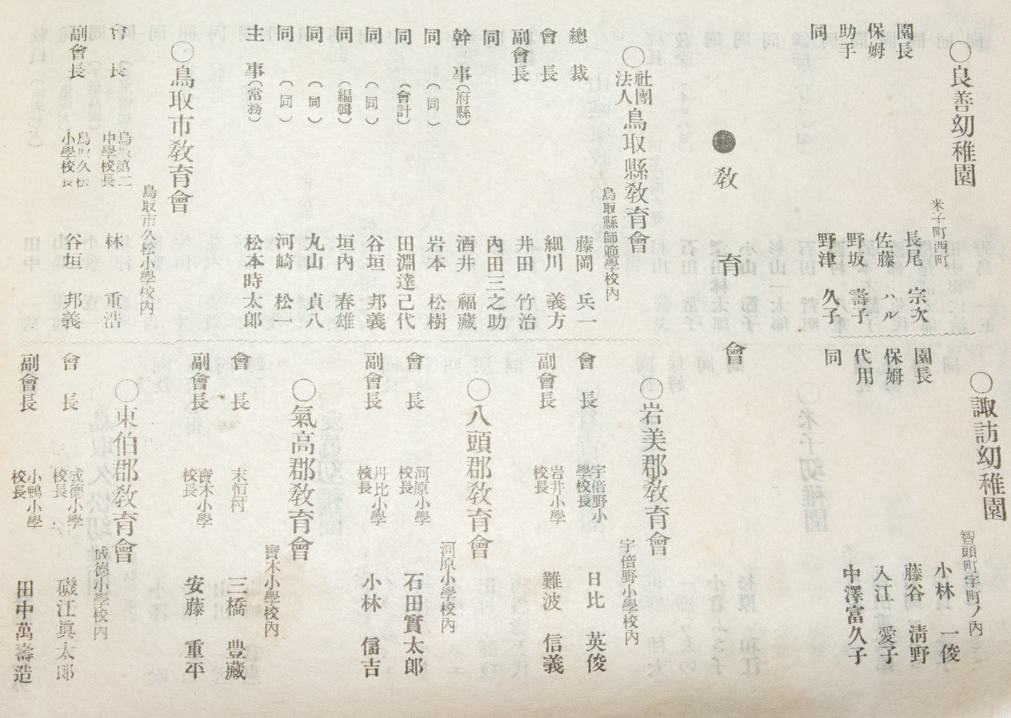 〇良善幼稚園
米子町西町
園長 長尾 宗次
保姆 佐藤 ハル
助手 野坂 壽子
同 野津 久子
〇諏訪幼稚園
智頭町字町ノ内
園長 小林 一俊
保姆 藤谷 清野
代用 入江 愛子
同 中澤富久子
●敎育會
〇社團法人鳥取縣敎育會
鳥取縣師範學校內
總裁 藤岡 兵一
會長 細川 義方
副會長 井田 竹治
同 內田三之助
幹事(府縣) 酒井 福藏
同(同) 岩本 松樹
同(會計) 田淵達己代
同(同) 谷垣 邦義
同(編輯) 垣內 春雄
同(同) 丸山 貞八
同(同) 河崎 松一
主事(常務) 松本時太郎
〇鳥取市敎育會
鳥取市久松小學校內
會長 鳥取第二中學校長 林 重浩
副會長 鳥取久松小學校長 谷垣 邦義
〇岩美郡敎育會
宇倍野小學校內
會長 宇倍野小學校長 日比 英俊
副會長 岩井小學校長 難波 信義
〇八頭郡敎育會
河原小學校內
會長 河原小學校長 石田實太郎
副會長 丹比小學校長 小林 信吉
〇氣高郡敎育會
寶木小學校內
會長 末恒村 三橋 豊藏
副會長 寶木小學校長 安藤 重平
〇東伯郡敎育會
成德小學校內
會長 成德小學校長 磯江眞太郎
副會長 小鴨小學校長 田中萬壽造